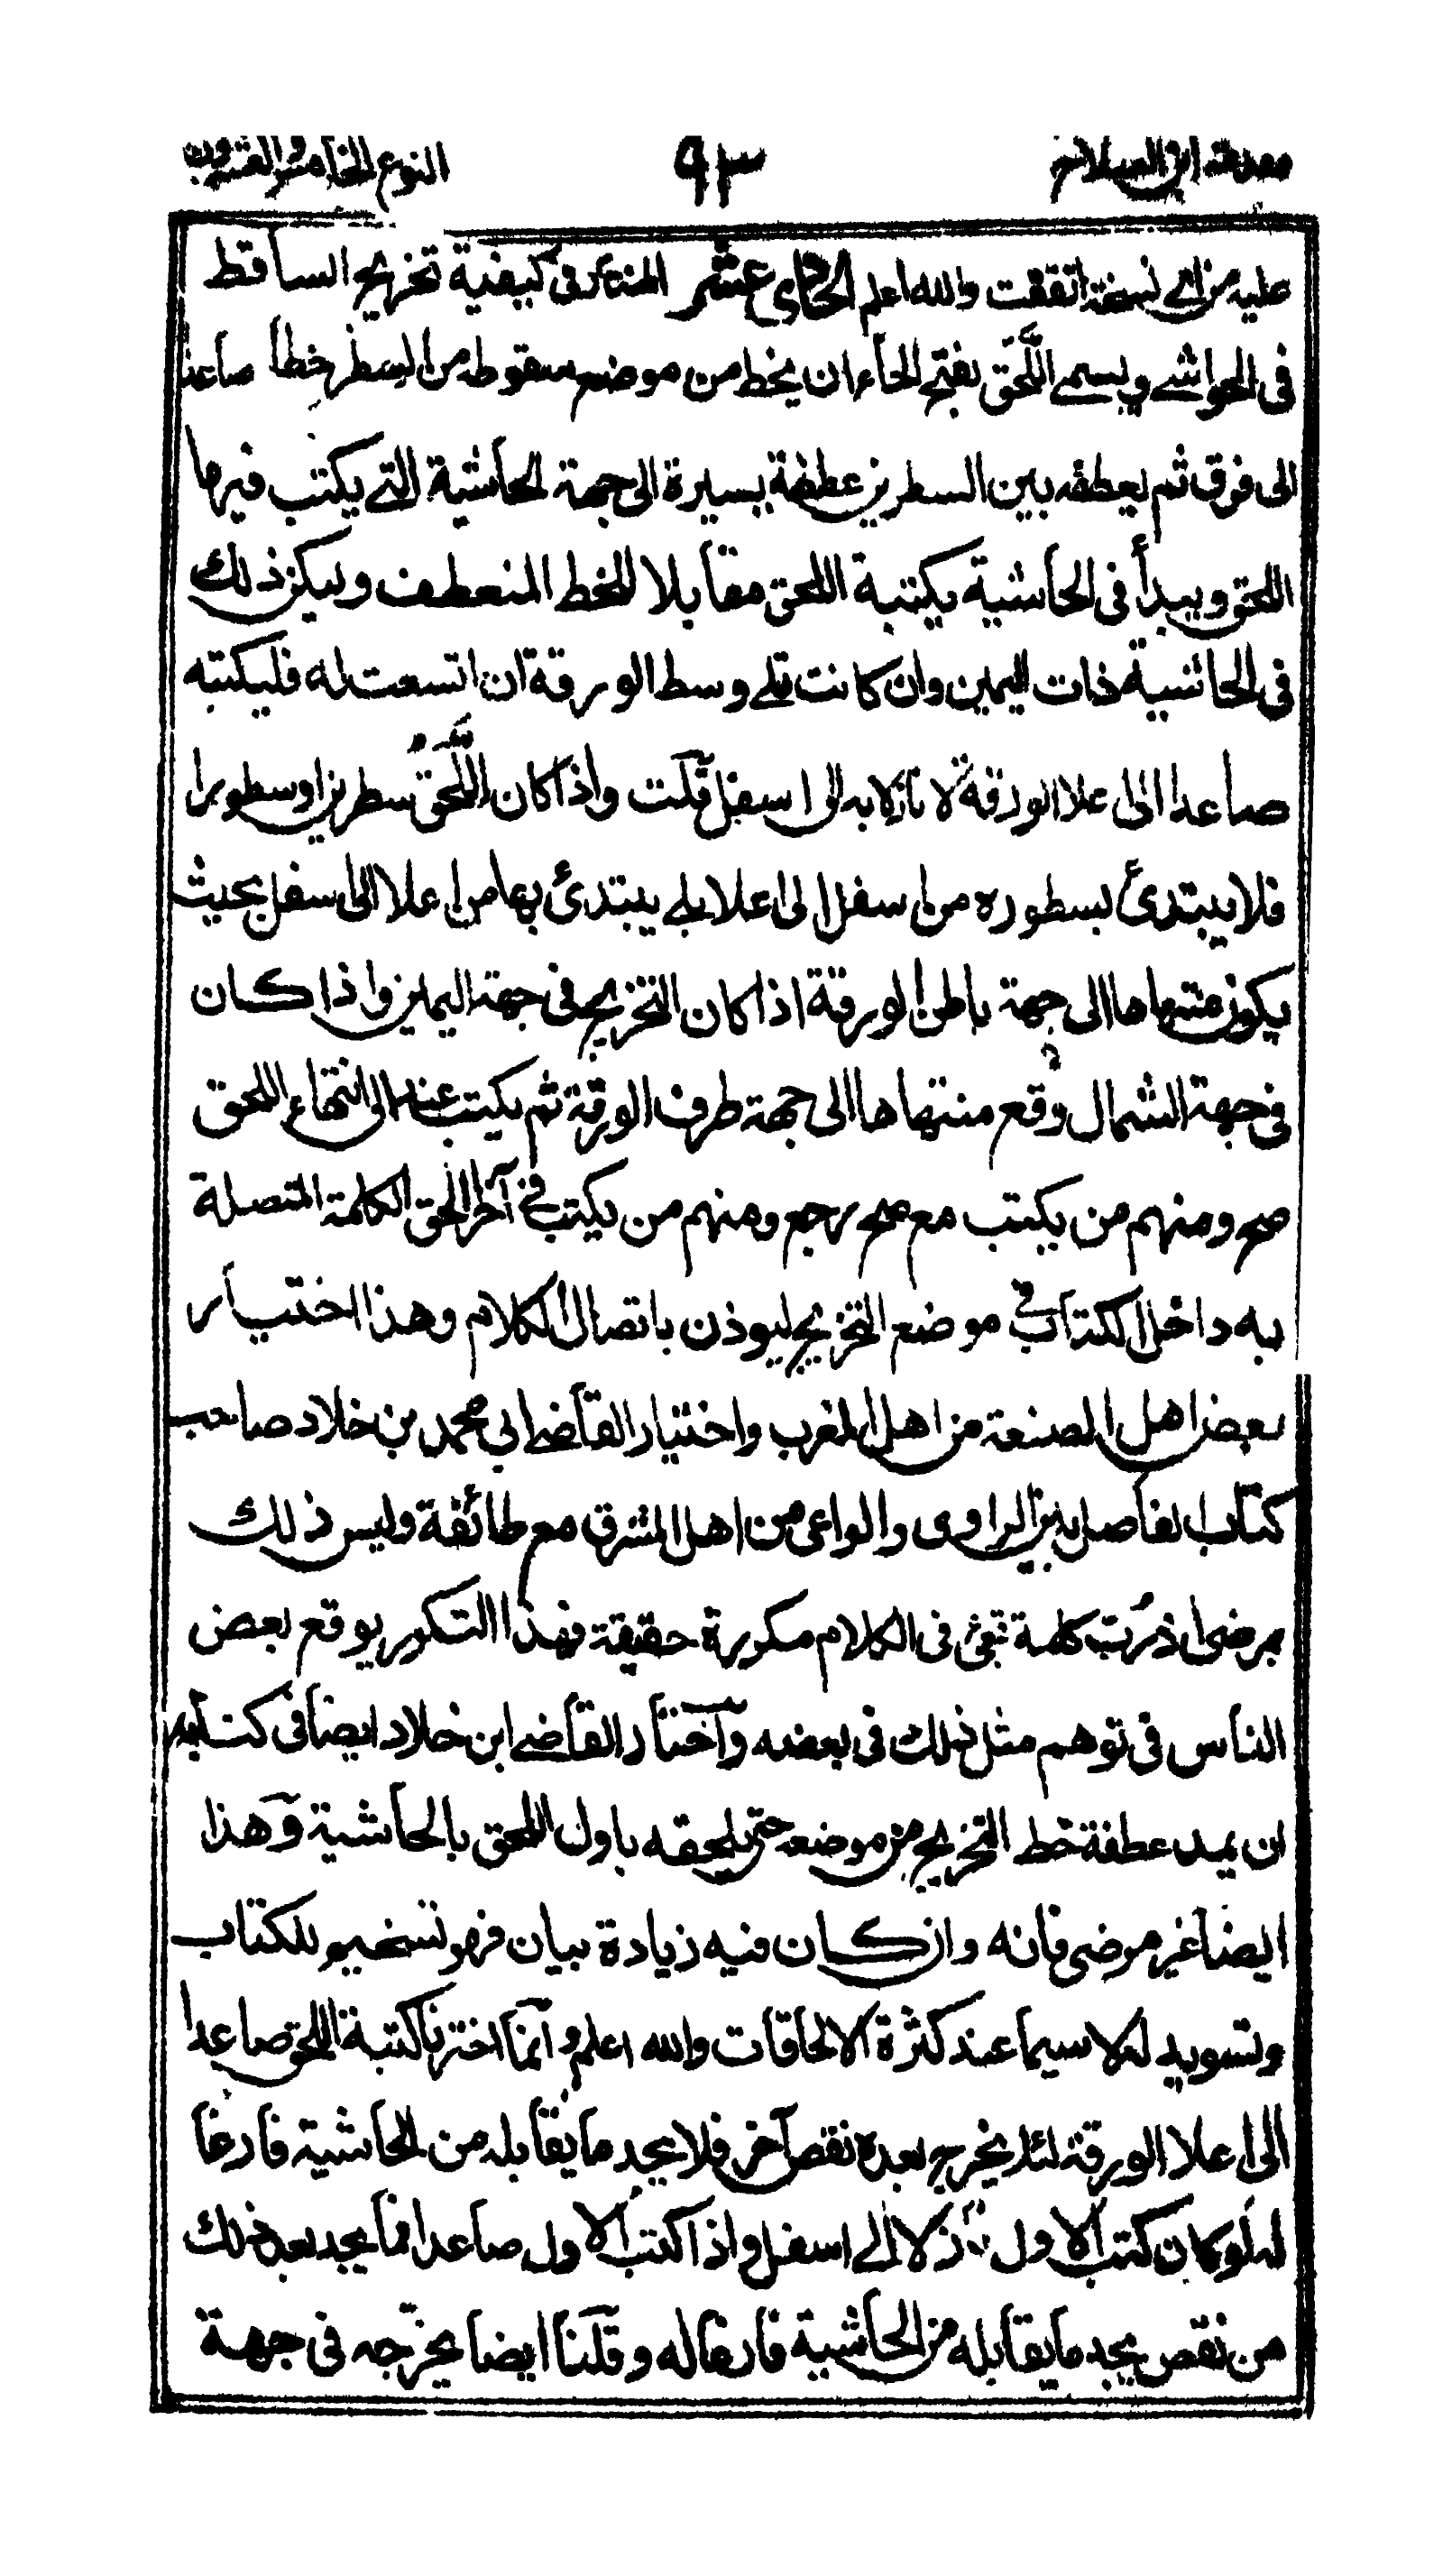 مقدمة ابن الصلاح ٩٣ النوع الخامس والعشرون
عليه من اى نسخة اتفقت والله اعلم الحادى عشر المختار فى كيفية تخريج الساقط
فى الحواشے ويسمے اللَّحَق بفتح الحاء ان يخط من موضع سقوطه من السطر خطا صاعدا
الى فوق ثم يعطفه بين السطرين عطفة يسيرة الى جهة الحاشية التے يكتب فيها
اللحق ويبدأ فى الحاشية بكتبة اللحق مقابلا للخط المنعطف وليكن ذلك
فى الحاشية ذات اليمين وان كانت تلے وسط الورقة ان اتسعت له فليكتبه
صاعدا الى اعلا الورقة لا نازلا به الى اسفل قلت واذا كان اللَّحَقُ سطرين او سطورا
فلا يبتدئ بسطوره من اسفل الى اعلا بلے يبتدئ بها من اعلا الى اسفل بحيث
يكون منتهاها الى جهة باطن الورقة اذا كان التخريج فى جهة اليمين واذا كان
فى جهة الشمال وقع منتهاها الى جهة طرف الورقة ثم يكتب عند انتهاء اللحق
صح ومنهم من يكتب مع صح رجع ومنهم من يكتب فى آخر اللحق الكلمة المتصلة
به داخل الكتاب فى موضع التخريج ليوذن باتصال الكلام وهذا اختيار
بعض اهل الصنعة من اهل المغرب واختيار القاضے ابى محمد بن خلاد صاحب
كتاب الفاصل بين الراوى والواعى من اهل المشرق مع طائفة وليس ذلك
بمرضى اذ رُبّ كلمة تجئ فى الكلام مكررة حقيقة فهذا التكرير يوقع بعض
الناس فى توهم مثل ذلك فى بعضه وآختار القاضے ابن خلاد ايضا فى كتابه
ان يمد عطفة خط التخريج من موضعه حتى يلحقه باول اللحق بالحاشية وهذا
ايضا غير مرضى فانه وان كان فيه زيادة بيان فهو تسخيم للكتاب
وتسويد له لا سيما عند كثرة الالحاقات والله اعلم وانما اخترنا كتبة اللحق صاعدا
الى اعلا الورقة لئلا يخرج بعده نقص آخر فلا يجد ما يقابله من الحاشية فارغا
له لو كان كتب الاول نازلا الے اسفل واذا كتب الاول صاعدا فما يجد بعد ذلك
من نقص يجد ما يقابله من الحاشية فارغا له وقلنا ايضا يخرّجه فى جهة